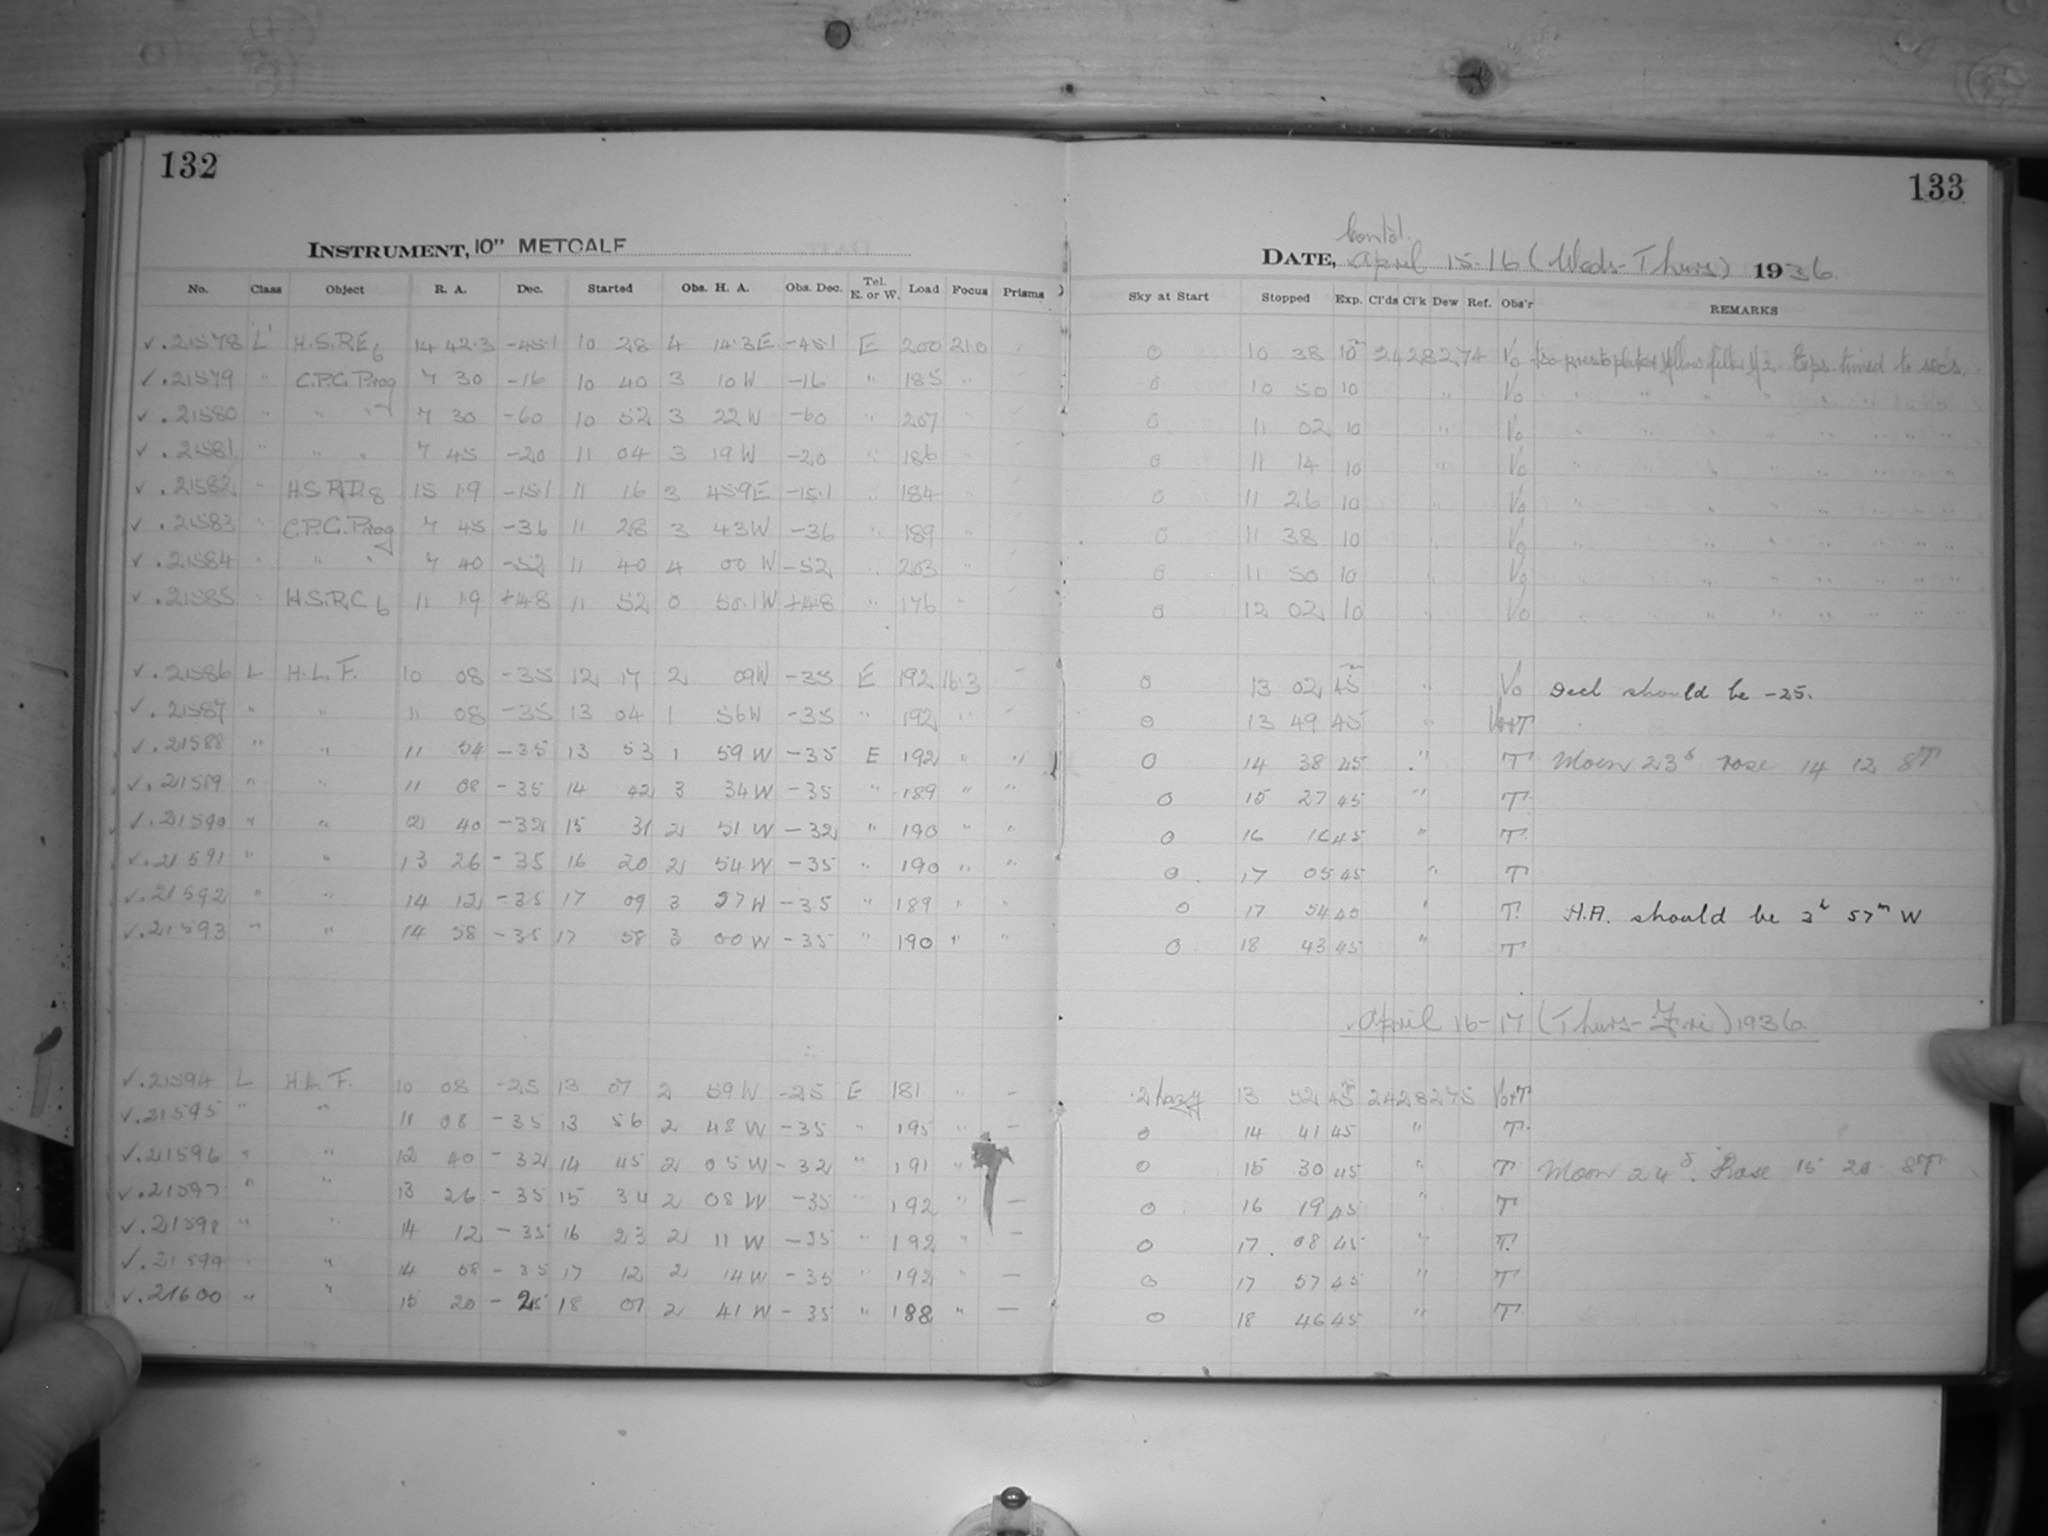 132
133
INSTRUMENT, 10" METCALF
Contd.
DATE, April 15-16 (Weds-Thurs) 1936
No. Class Object R. A. Dec. Started Obs. H. A. Obs. Dec. Tel. E. or W. Load Focus Prisms Sky at Start Stopped Exp. Cl'ds Cl'k Dew Ref. Obs'r REMARKS
✓. 21578 L' H.S.R.E6 14 42.3 -45.1 10 28 4 14.3E -45.1 E 200 21.0 0 10 38 10m 2428274 Vo Exps. timed to secs.
✓. 21579 " C.P.C. Prog 7 30 -16 10 40 3 10W -16 " 185 " 0 10 50 10 " Vo " " " "
✓. 21580 " " " 7 30 -60 10 52 3 22W -60 " 207 0 11 02 10 " Vo " " " "
✓. 21581 " " " 7 45 -20 11 04 3 19W -20 " 186 0 11 14 10 " Vo " " " "
✓. 21582 " H.S.R.D8 15 1.9 -15.1 11 16 3 45.9E -15.1 " 184 " 0 11 26 10 Vo " " " "
✓. 21583 " C.P.C. Prog 7 45 -36 11 28 3 43W -36 " 189 " 0 11 38 10 " Vo " " " "
✓. 21584 " " " 7 40 -52 11 40 4 00W -52 " 203 " 0 11 50 10 " Vo " " " "
✓. 21585 " H.S.R.C6 11 1.9 +4.8 11 52 0 50.1W +4.8 " 176 " 0 12 02 10 " Vo " " " "
✓. 21586 L H.L.F. 10 08 -35 12 17 2 09W -35 E 192 16.3 - 0 13 02 45m " Vo Decl should be -25.
✓. 21587 " " 11 08 -35 13 04 1 56W -35 " 192 " " 0 13 49 45 " Vo+T
✓. 21588 " " 11 54 -35 13 53 1 59W -35 E 192 " " 0 14 38 45 " T Moon 23d rose 14 12 ST
✓. 21589 " " 11 08 -35 14 42 3 34W -35 " 189 " " 0 15 27 45 " T
✓. 21590 " " 2 40 -32 15 31 2 51W -32 " 190 " " 0 16 16 45 " T
✓. 21591 " " 13 26 -35 16 20 2 54W -35 " 190 " " 0 17 05 45 " T
✓. 21592 " " 14 12 -35 17 09 3 27W -35 " 189 " " 0 17 54 45 " T. H.A. should be 2h 57m W
✓. 21593 " " 14 58 -35 17 58 3 00W -35 " 190 " " 0 18 43 45 " T
April 16-17 (Thurs-Fri) 1936.
✓. 21594 L H.L.F. 10 08 -25 13 07 2 59W -25 E 181 " - 2 hazy 13 52 45m 2428275 Vo+T
✓. 21595 " " 11 08 -35 13 56 2 48W -35 " 195 " - 0 14 41 45 " T
✓. 21596 " " 12 40 -32 14 45 2 05W -32 " 191 " 0 15 30 45 " T Moon 24d. Rose 15 20 ST
✓. 21597 " " 13 26 -35 15 34 2 08W -35 192 " - 0 16 19 45 " T
✓. 21598 " " 14 12 -35 16 23 2 11W -35 " 192 " - 0 17 08 45 " T.
✓. 21599 " " 14 58 -35 17 12 2 14W -35 " 192 " - 0 17 57 45 " T
✓. 21600 " " 15 20 -25 18 01 2 41W -35 " 188 " - 0 18 46 45 " T